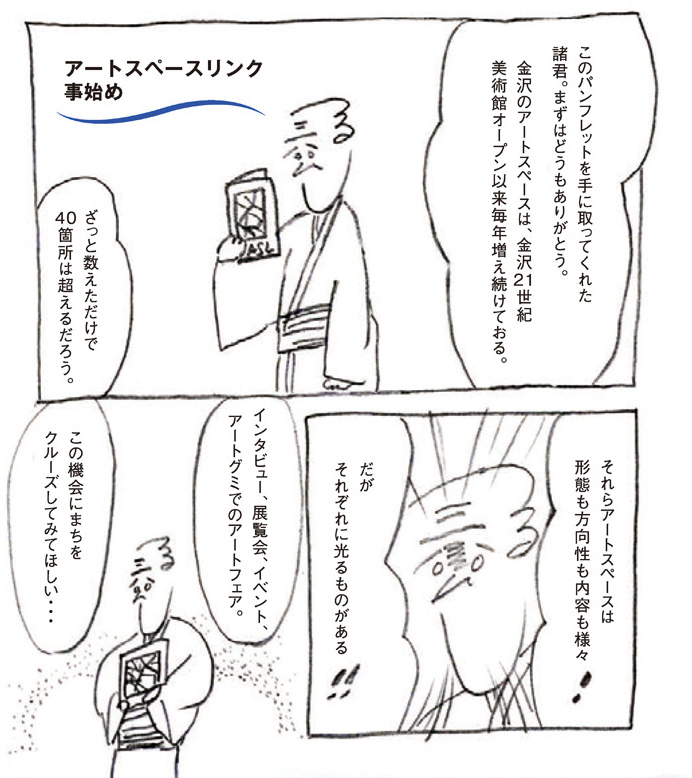 アートスペースリンク
事始め
このパンフレットを手に取ってくれた
諸君。まずはどうもありがとう。
金沢のアートスペースは、金沢21世紀
美術館オープン以来毎年増え続けておる。
ASL
ざっと数えただけで
40箇所は超えるだろう。
それらアートスペースは
形態も方向性も内容も様々
！
だが
それぞれに光るものがある
!!
インタビュー、展覧会、イベント、
アートグミでのアートフェア。
この機会にまちを
クルーズしてみてほしい・・・